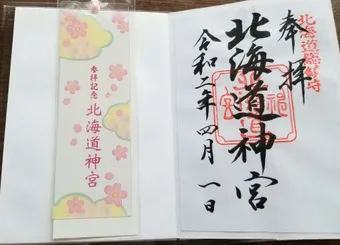 参拝記念
北海道神宮
北海道総鎮守
奉拝
北海道神宮
令和二年四月一日